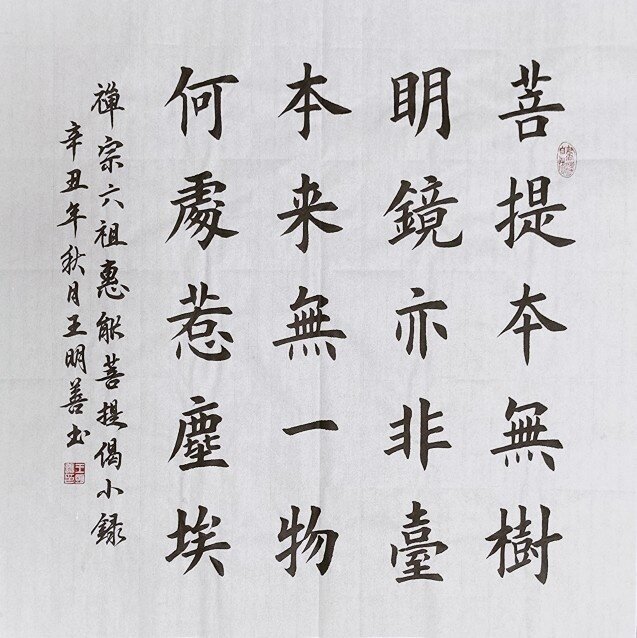 菩提本無樹
明鏡亦非臺
本来無一物
何處惹塵埃
禪宗六祖惠能菩提偈小録
辛丑年秋月王明善书